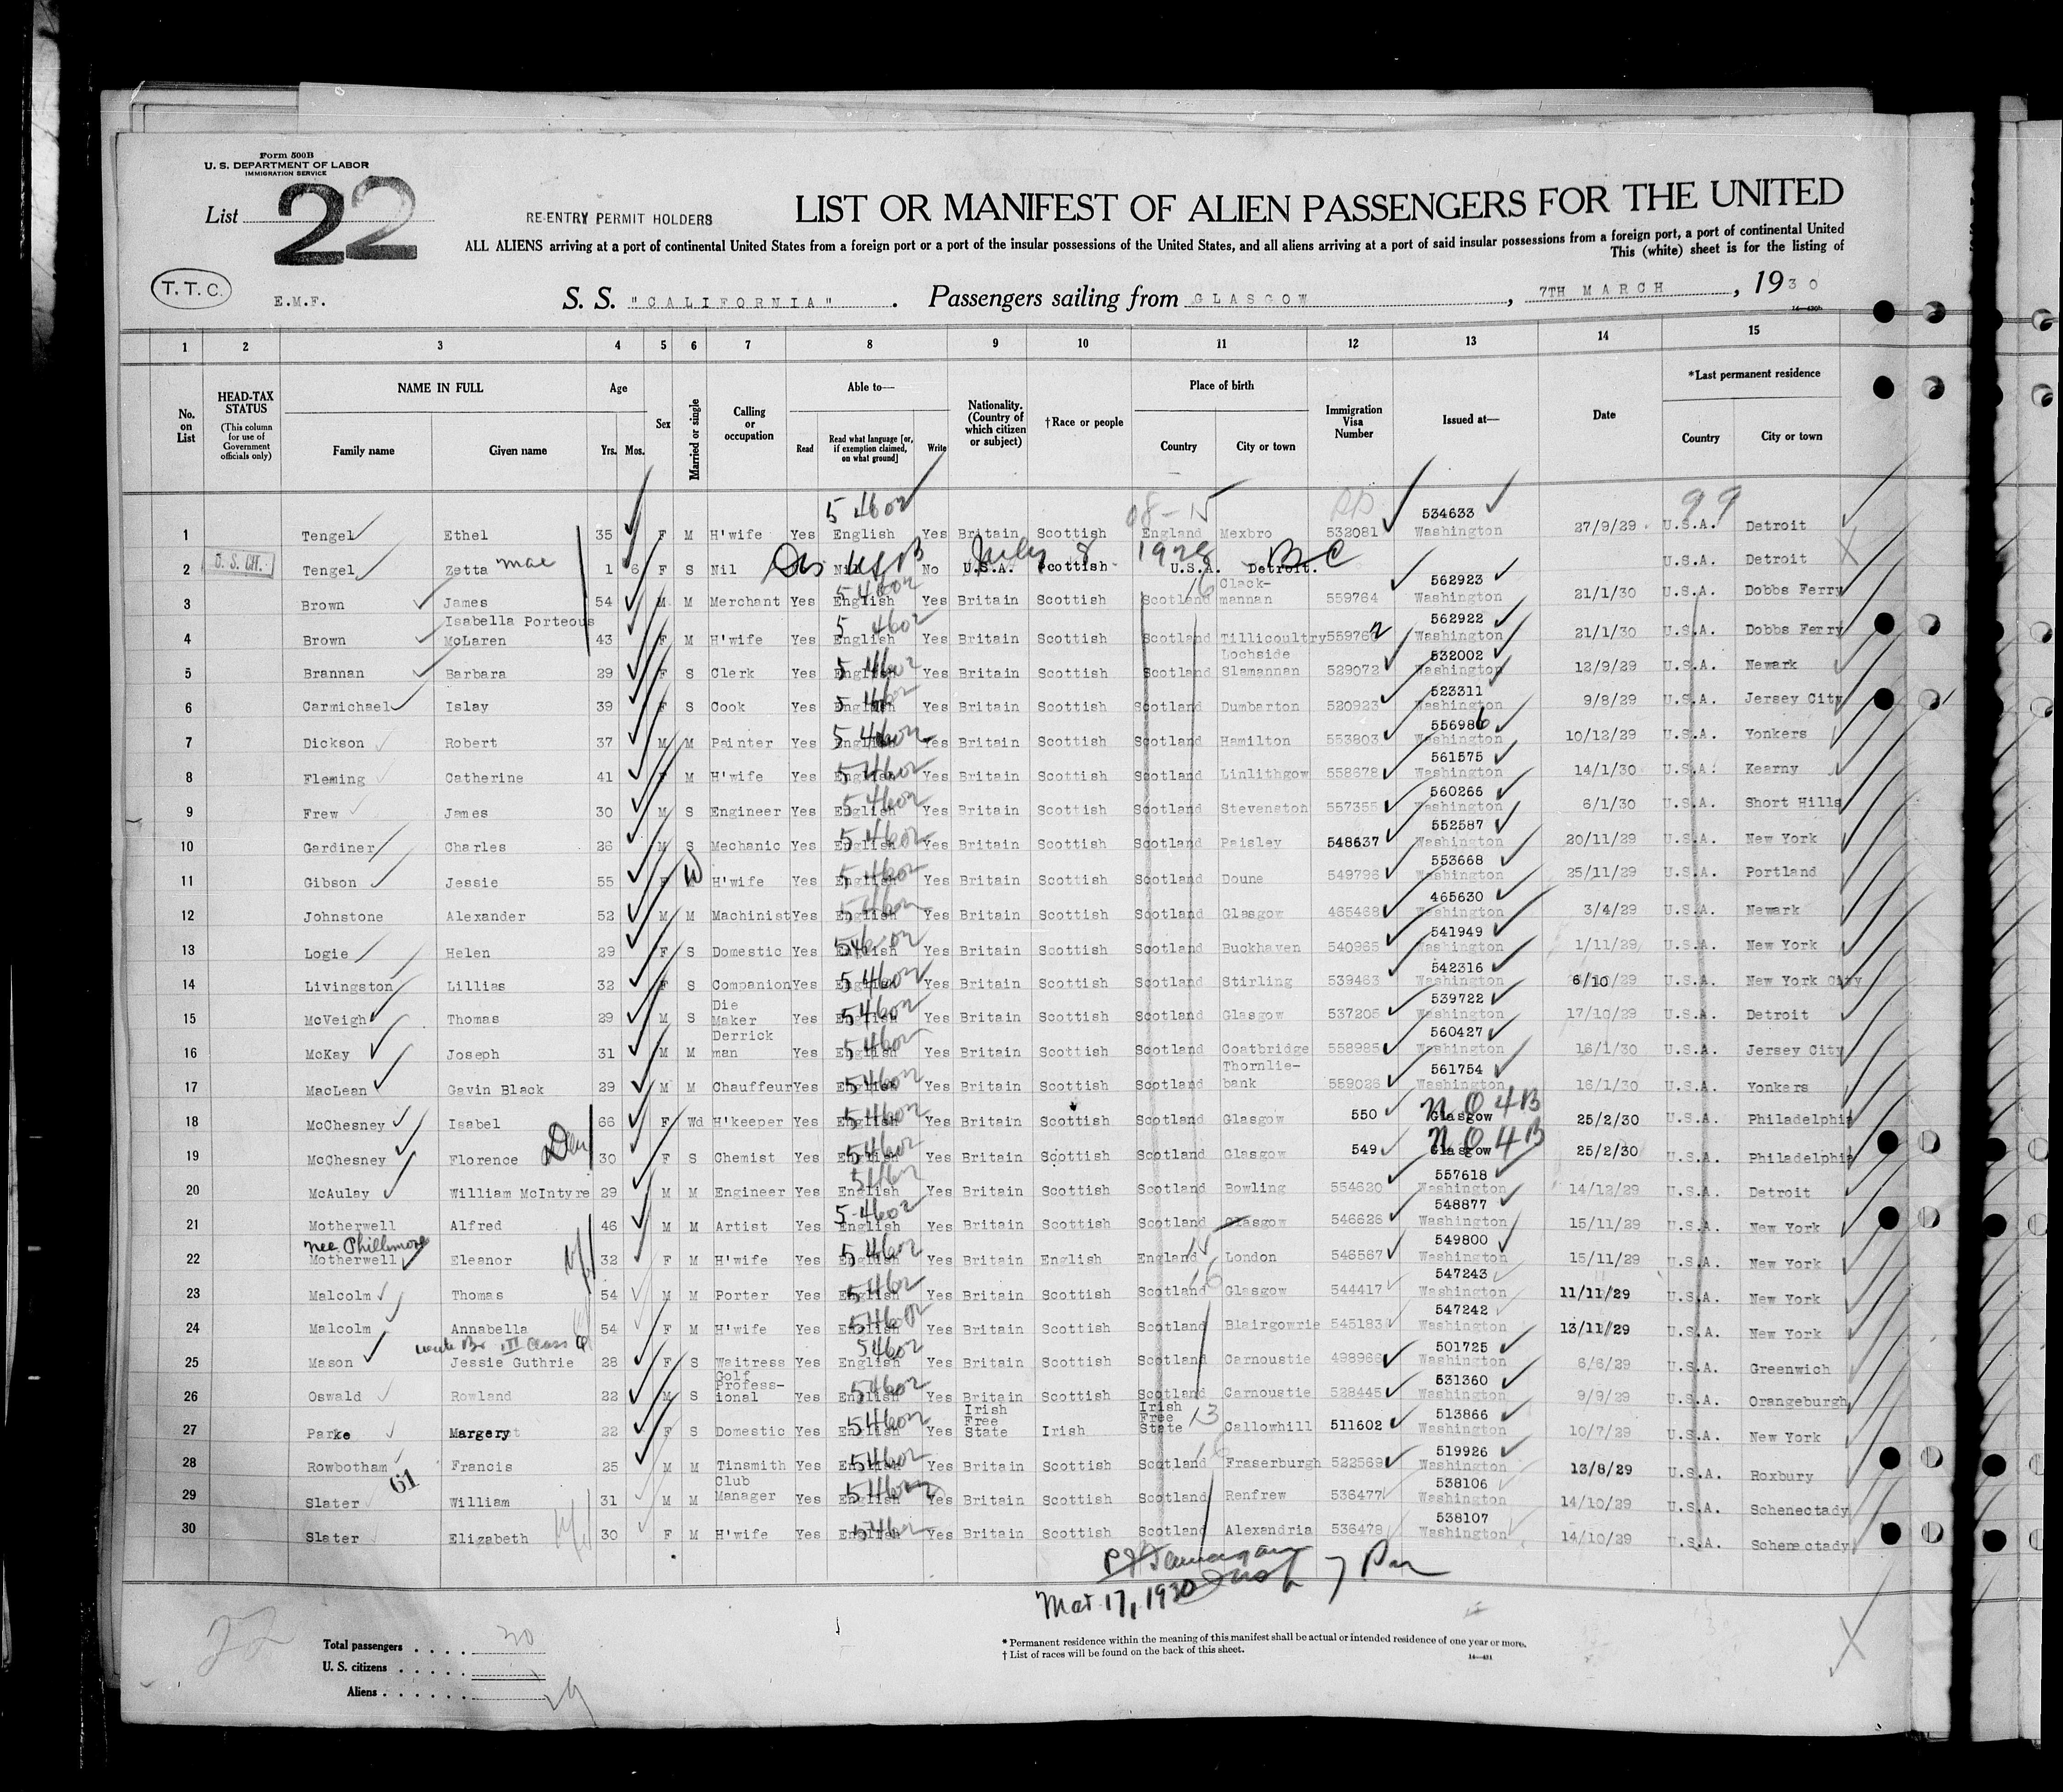 Form 500B
U. S. DEPARTMENT OF LABOR
IMMIGRATION SERVICE
List 22
RE-ENTRY PERMIT HOLDERS
LIST OR MANIFEST OF ALIEN PASSENGERS FOR THE UNITED
ALL ALIENS arriving at a port of continental United States from a foreign port or a port of the insular possessions of the United States, and all aliens arriving at a port of said insular possessions from a foreign port, a port of continental United
This (white) sheet is for the listing of
T.T.C.
E.M.F.
S. S. "CALIFORNIA". Passengers sailing from GLASGOW, 7TH MARCH, 1930
1 2 3 4 5 6 7 8 9 10 11 12 13 14 15
No. on List
HEAD-TAX STATUS (This column for use of Government officials only)
NAME IN FULL Family name Given name
Age Yrs. Mos.
Sex
Married or single
Calling or occupation
Able to— Read Read what language [or, if exemption claimed, on what ground] Write
Nationality. (Country of which citizen or subject)
†Race or people
Place of birth Country City or town
Immigration Visa Number
Issued at—
Date
*Last permanent residence Country City or town
54602 08-15 534633 99
1 Tengel Ethel 35 F M H'wife Yes English Yes Britain Scottish England Mexbro 532081 Washington 27/9/29 U.S.A. Detroit
U. S. CH. July 8 1928 B C
2 Tengel Zetta Mae 1 6 F S Nil Nil No U.S.A. Scottish U.S.A. Detroit. U.S.A. Detroit
54602 16 562923
3 Brown James 54 M M Merchant Yes English Yes Britain Scottish Scotland Clack-mannan 559764 Washington 21/1/30 U.S.A. Dobbs Ferry
54602 562922
4 Brown Isabella Porteous McLaren 43 F M H'wife Yes English Yes Britain Scottish Scotland Tillicoultry 559762 Washington 21/1/30 U.S.A. Dobbs Ferry
54602 532002
5 Brannan Barbara 29 F S Clerk Yes English Yes Britain Scottish Scotland Lochside Slamannan 529072 Washington 12/9/29 U.S.A. Newark
54602 523311
6 Carmichael Islay 39 F S Cook Yes English Yes Britain Scottish Scotland Dumbarton 520923 Washington 9/8/29 U.S.A. Jersey City
54602 556986
7 Dickson Robert 37 M M Painter Yes English Yes Britain Scottish Scotland Hamilton 553803 Washington 10/12/29 U.S.A. Yonkers
54602 561575
8 Fleming Catherine 41 F M H'wife Yes English Yes Britain Scottish Scotland Linlithgow 558678 Washington 14/1/30 U.S.A. Kearny
54602 560266
9 Frew James 30 M S Engineer Yes English Yes Britain Scottish Scotland Stevenston 557355 Washington 6/1/30 U.S.A. Short Hills
54602 552587
10 Gardiner Charles 26 M S Mechanic Yes English Yes Britain Scottish Scotland Paisley 548637 Washington 20/11/29 U.S.A. New York
54602 553668
11 Gibson Jessie 55 F W H'wife Yes English Yes Britain Scottish Scotland Doune 549796 Washington 25/11/29 U.S.A. Portland
54602 465630
12 Johnstone Alexander 52 M M Machinist Yes English Yes Britain Scottish Scotland Glasgow 465468 Washington 3/4/29 U.S.A. Newark
54602 541949
13 Logie Helen 29 F S Domestic Yes English Yes Britain Scottish Scotland Buckhaven 540965 Washington 1/11/29 U.S.A. New York
54602 542316
14 Livingston Lillias 32 F S Companion Yes English Yes Britain Scottish Scotland Stirling 539463 Washington 6/10/29 U.S.A. New York City
54602 539722
15 McVeigh Thomas 29 M S Die Maker Yes English Yes Britain Scottish Scotland Glasgow 537205 Washington 17/10/29 U.S.A. Detroit
54602 560427
16 McKay Joseph 31 M M Derrick man Yes English Yes Britain Scottish Scotland Coatbridge 558985 Washington 16/1/30 U.S.A. Jersey City
54602 561754
17 MacLean Gavin Black 29 M M Chauffeur Yes English Yes Britain Scottish Scotland Thornlie-bank 559026 Washington 16/1/30 U.S.A. Yonkers
54602 NQ4B
18 McChesney Isabel 66 F Wd H'keeper Yes English Yes Britain Scottish Scotland Glasgow 550 Glasgow 25/2/30 U.S.A. Philadelphia
54602 NQ4B
19 McChesney Florence 30 F S Chemist Yes English Yes Britain Scottish Scotland Glasgow 549 Glasgow 25/2/30 U.S.A. Philadelphia
54602 557618
20 McAulay William McIntyre 29 M M Engineer Yes English Yes Britain Scottish Scotland Bowling 554620 Washington 14/12/29 U.S.A. Detroit
54602 548877
21 Motherwell Alfred 46 M M Artist Yes English Yes Britain Scottish Scotland Glasgow 546626 Washington 15/11/29 U.S.A. New York
nee Phillimore 54602 15 549800
22 Motherwell Eleanor 32 F M H'wife Yes English Yes Britain English England London 546567 Washington 15/11/29 U.S.A. New York
54602 16 547243
23 Malcolm Thomas 54 M M Porter Yes English Yes Britain Scottish Scotland Glasgow 544417 Washington 11/11/29 U.S.A. New York
54602 547242
24 Malcolm Annabella 54 F M H'wife Yes English Yes Britain Scottish Scotland Blairgowrie 545183 Washington 13/11/29 U.S.A. New York
III Class 54602 501725
25 Mason Jessie Guthrie 28 F S Waitress Yes English Yes Britain Scottish Scotland Carnoustie 498966 Washington 6/6/29 U.S.A. Greenwich
54602 531360
26 Oswald Rowland 22 M S Golf Profess-ional Yes English Yes Britain Scottish Scotland Carnoustie 528445 Washington 9/9/29 U.S.A. Orangeburgh
54602 13 513866
27 Parke Margery 22 F S Domestic Yes English Yes Irish Free State Irish Irish Free State Callowhill 511602 Washington 10/7/29 U.S.A. New York
54602 16 519926
28 Rowbotham Francis 25 M M Tinsmith Yes English Yes Britain Scottish Scotland Fraserburgh 522569 Washington 13/8/29 U.S.A. Roxbury
61 54602 538106
29 Slater William 31 M M Club Manager Yes English Yes Britain Scottish Scotland Renfrew 536477 Washington 14/10/29 U.S.A. Schenectady
54602 538107
30 Slater Elizabeth 30 F M H'wife Yes English Yes Britain Scottish Scotland Alexandria 536478 Washington 14/10/29 U.S.A. Schenectady
Mar. 17, 1930
22
Total passengers . . . . 30
U. S. citizens . . . . .
Aliens . . . . . . 29
* Permanent residence within the meaning of this manifest shall be actual or intended residence of one year or more.
† List of races will be found on the back of this sheet.